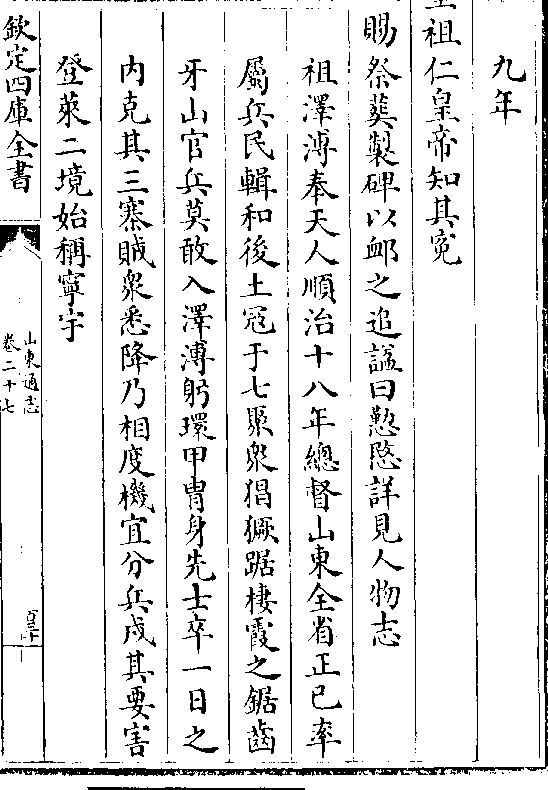 九年
聖祖仁皇帝知其寃
賜祭葬製碑以䘏之追諡曰懃愍詳見人物志
祖澤溥奉天人順治十八年總督山東全省正己率
屬兵民輯和後土寇于七聚衆猖獗踞棲霞之鋸齒
牙山官兵莫敢入澤溥躬環甲胄身先士卒一日之
内克其三寨賊衆悉降乃相度機宜分兵戍其要害
登萊二境始稱寧宇
欽定四庫全書
山東通志
卷二十七